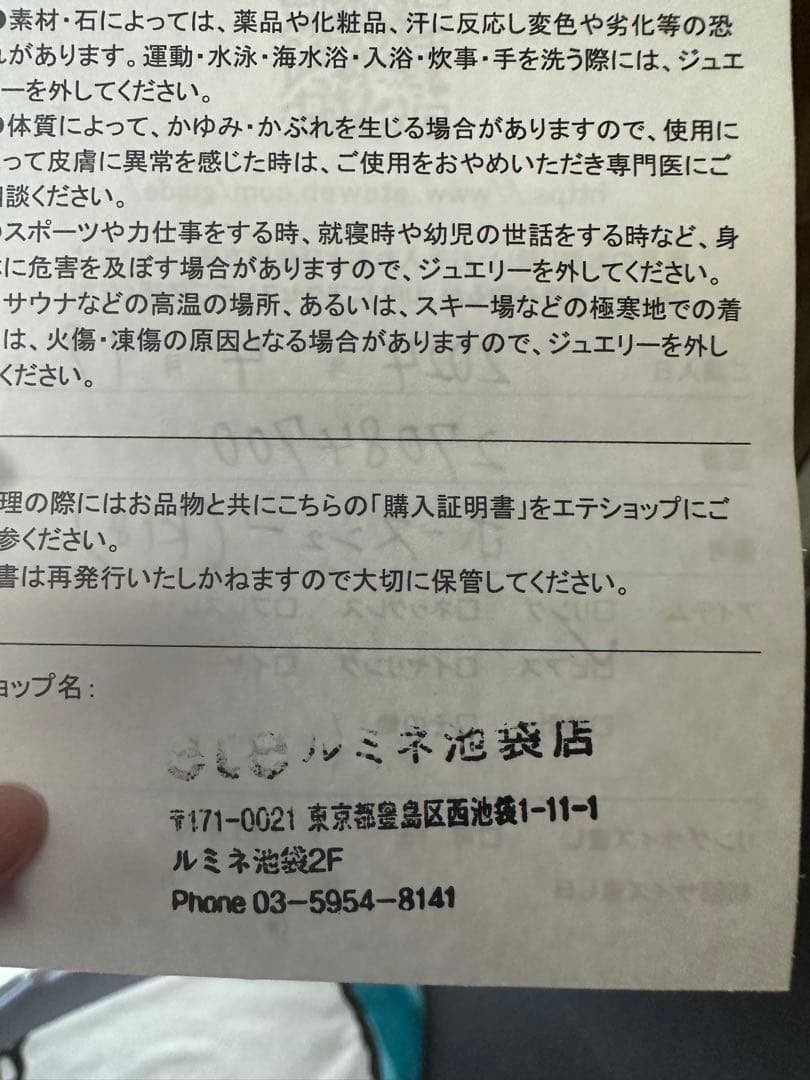 ●素材・石によっては、薬品や化粧品、汗に反応し変色や劣化等の恐
れがあります。運動・水泳・海水浴・入浴・炊事・手を洗う際には、ジュエ
ーを外してください。
●体質によって、かゆみ・かぶれを生じる場合がありますので、使用に
って皮膚に異常を感じた時は、ご使用をおやめいただき専門医にご
相談ください。
●スポーツや力仕事をする時、就寝時や幼児の世話をする時など、身
体に危害を及ぼす場合がありますので、ジュエリーを外してください。
サウナなどの高温の場所、あるいは、スキー場などの極寒地での着
は、火傷・凍傷の原因となる場合がありますので、ジュエリーを外し
ください。
理の際にはお品物と共にこちらの「購入証明書」をエテショップにご
参ください。
書は再発行いたしかねますので大切に保管してください。
ョップ名:
ete ルミネ池袋店
〒171-0021 東京都豊島区西池袋1-11-1
ルミネ池袋2F
Phone 03-5954-8141